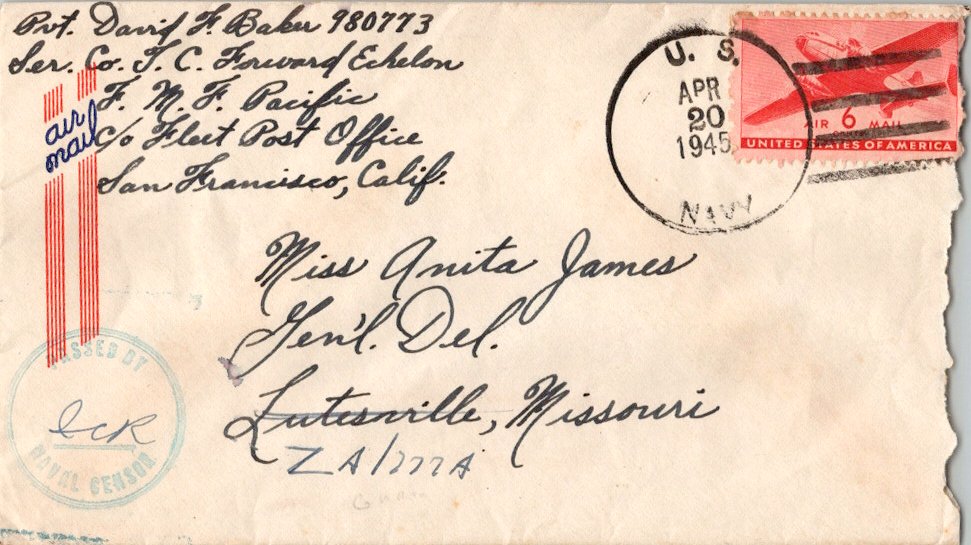 Pvt. David F. Baker 980773
Ser. Co. T. C. Forward Echelon
F. M. F. Pacific
c/o Fleet Post Office
San Francisco, Calif.
air
mail
U. S.
APR
20
1945
NAVY
AIR 6 MAIL
CENTS
UNITED STATES OF AMERICA
Miss Anita James
Gen'l. Del.
Lutesville, Missouri
ZALMA
PASSED BY
NAVAL CENSOR